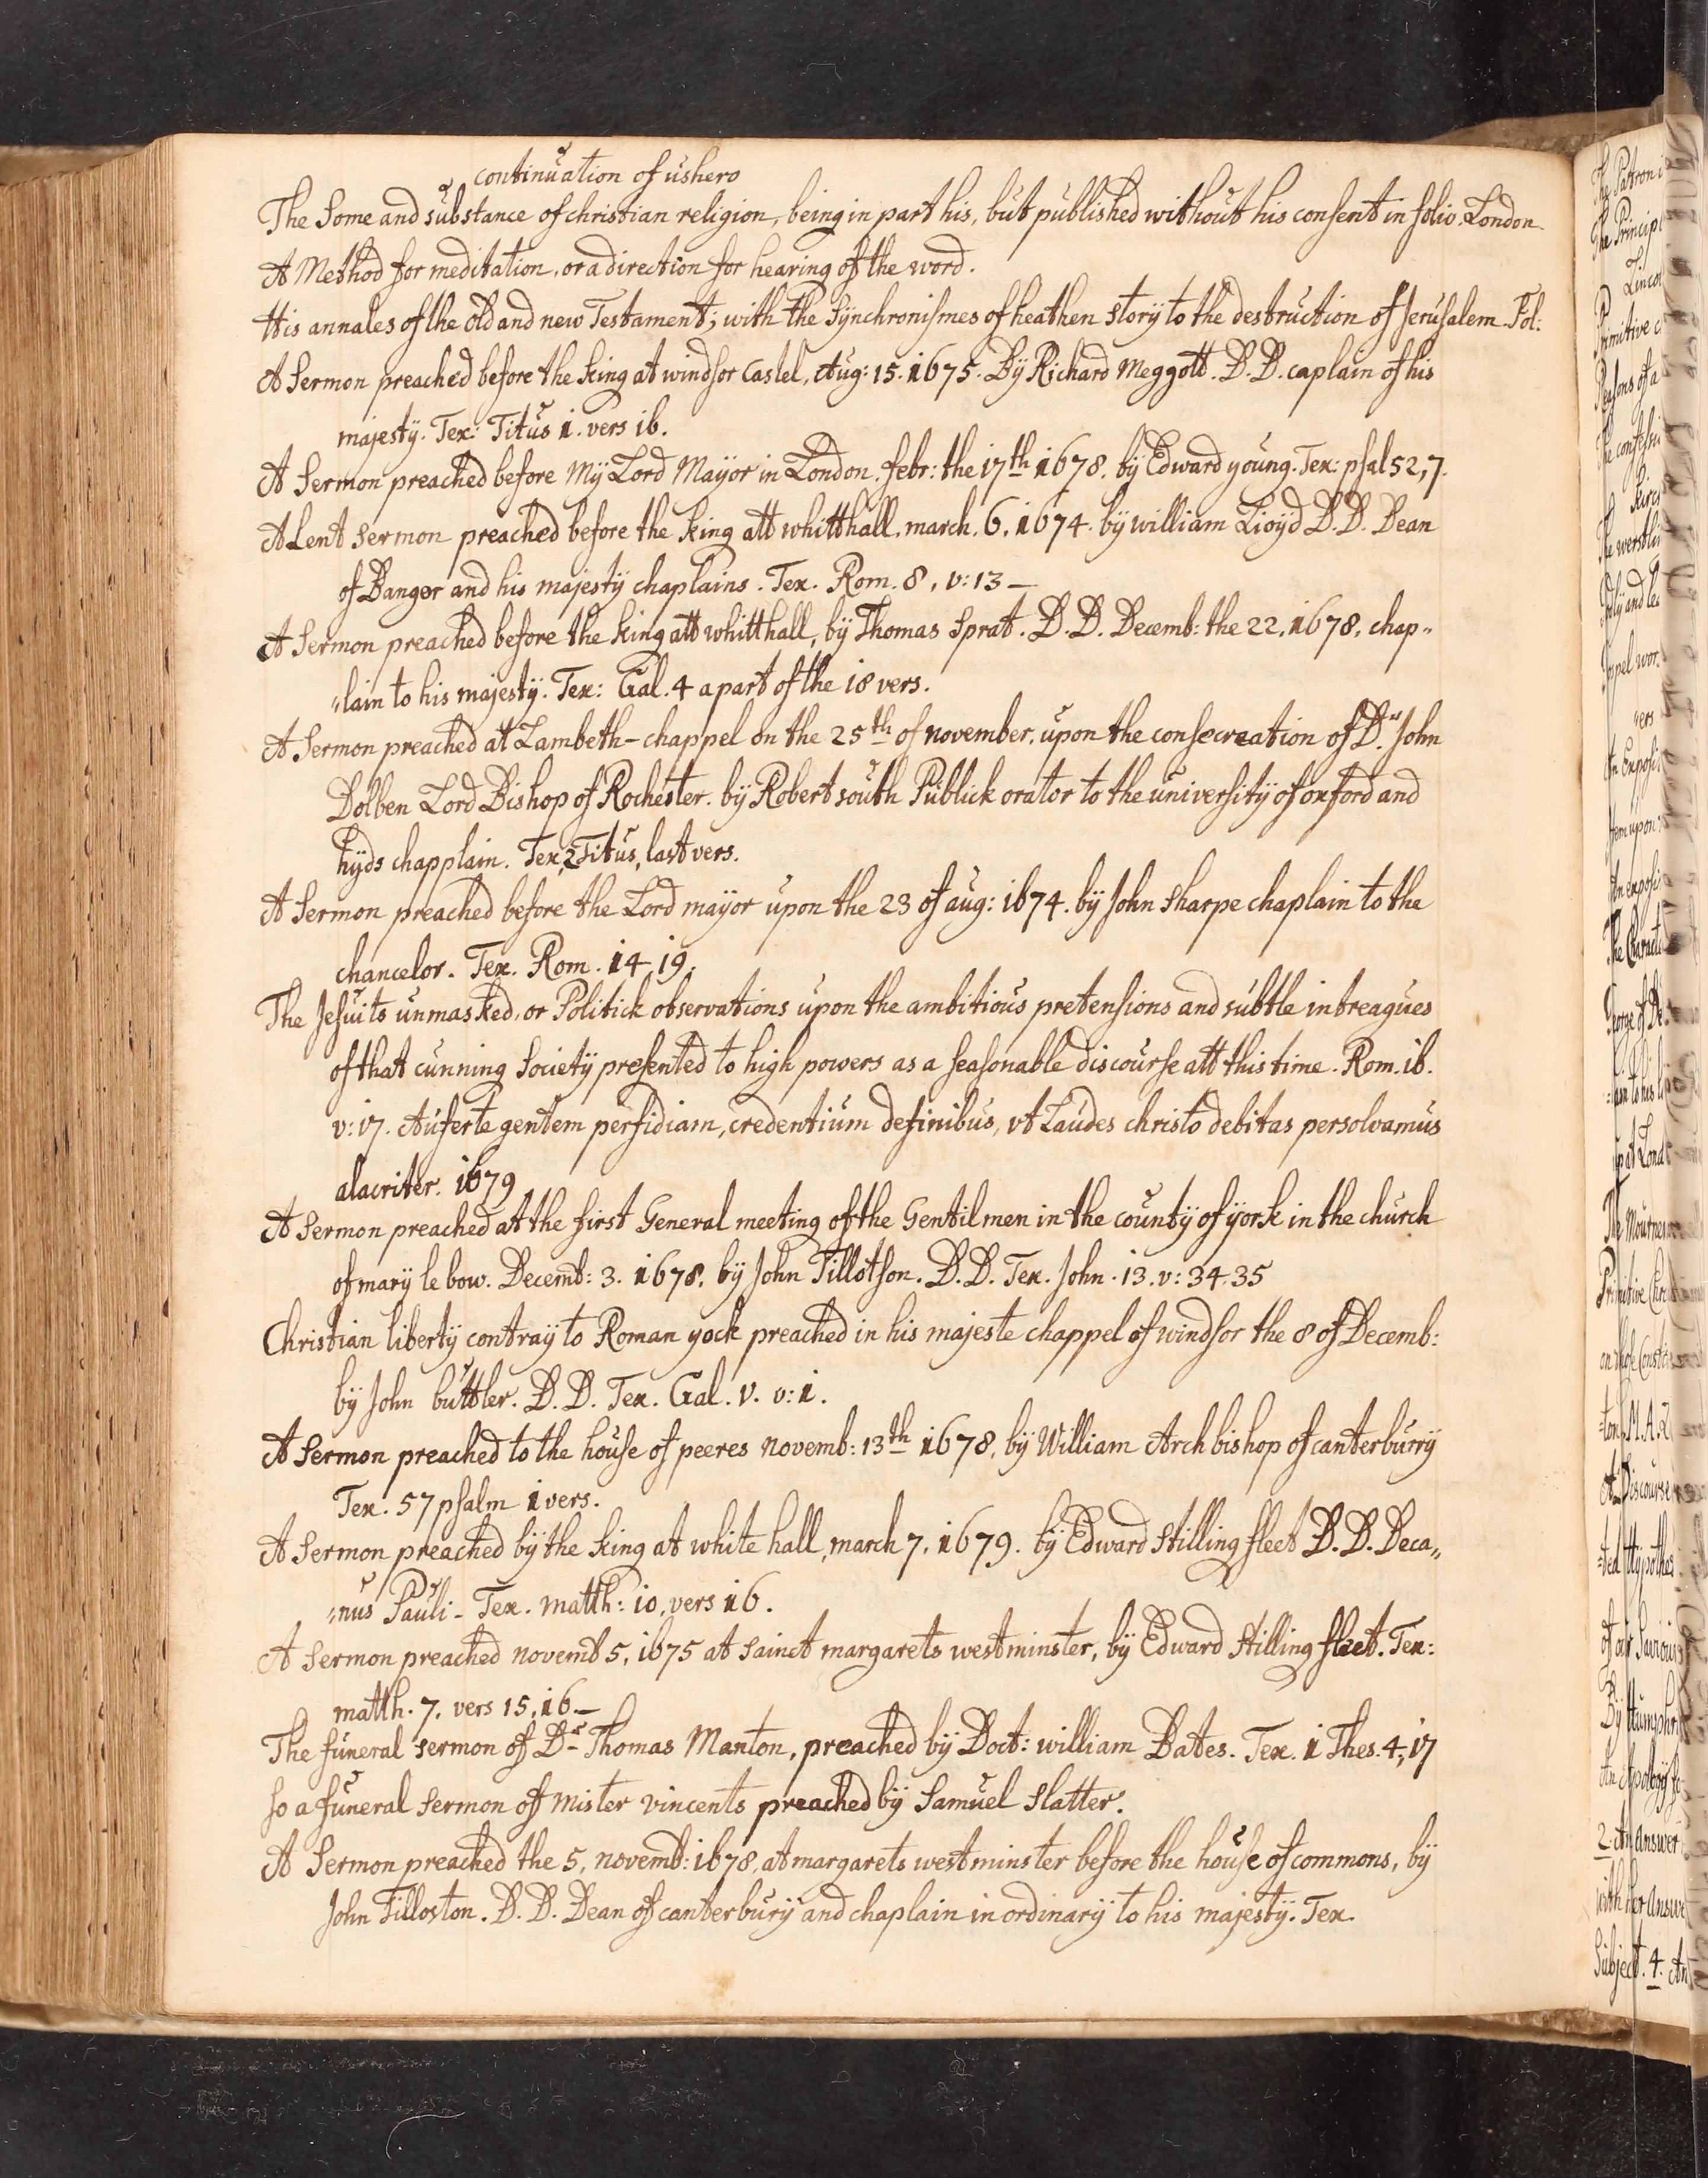 continuation of ushers
The Some and substance of christian religion, being in part his, but published without his consent in folio. London.
A Method for meditation, or a direction for hearing of the word.
His annales of the old and new Testament; with the Synchronismes of heathen story to the destruction of Jerusalem. Fol:
A Sermon preached before the king at windsor Castel, Aug: 15. 1675. By Richard Meggott. D.D. caplain of his
majesty. Tex: Titus 1. vers 16.
A Sermon preached before My Lord Mayor in London. febr: the 17th 1678. by Edward young. Tex: psal 52, 7.
A Lent sermon preached before the king att whitthall, march. 6. 1674. by william Lioyd D.D. Dean
of Bangor and his majesty chaplains. Tex. Rom. 8, v: 13 –
A Sermon preached before the king att whitthall, by Thomas Sprat. D.D. Decemb: the 22, 1678, chap„
„lain to his majesty. Tex: Gal. 4 a part of the 18 vers.
A Sermon preached at Lambeth-chappel on the 25th of november, upon the consecreation of Dr. John
Dolben Lord Bishop of Rochester. by Robert south Publick orator to the university of oxford and
hyds chapplain. Tex, 2 Titus, last vers.
A Sermon preached before the Lord mayor upon the 23 of aug: 1674. by John sharpe chaplain to the
chancelor. Tex. Rom. 14, 19.
The Jesuits unmasked, or Politick observations upon the ambitious pretensions and subtle intreagues
of that cunning Society presented to high powers as a seasonable discourse att this time. Rom. 16.
v: 17. Auferte gentem perfidiam, credentium definibus, vt Laudes christo debitas persolvamus
alacriter. 1679
A Sermon preached at the first General meeting of the Gentilmen in the county of york in the church
of mary le bow. Decemb: 3. 1678. by John Tillotson. D.D. Tex. John. 13. v: 34. 35
Christian liberty contray to Roman yock preached in his majeste chappel of windsor the 8 of Decemb:
by John buttler. D.D. Tex. Gal. v. v: 1.
A Sermon preached to the house of peeres novemb: 13th 1678, by William Archbishop of canterburry
Tex. 57 psalm 1 vers.
A Sermon preached by the king at white hall, march 7, 1679. by Edward stilling fleet D.D. Deca„
„nus Pauli – Tex. matth: 10, vers 16.
A Sermon preached novemb 5, 1675 at sainct margarets westminster, by Edward stilling fleet. Tex:
matth. 7. vers 15, 16. –
The funeral sermon of Dr Thomas Manton, preached by Doct: william Bates. Tex. 1 Thes. 4, 17
so a funeral sermon of mister vincents preached by Samuel slatter.
A Sermon preached the 5, novemb: 1678, at margarets westminster before the house of commons, by
John Tilloston. D.D. Dean of canterbury and chaplain in ordinary to his majesty. Tex.